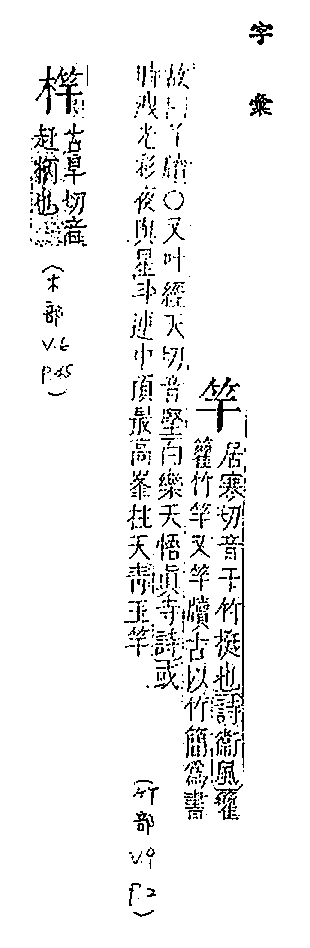 字彙
竿
居寒切音干竹挺也詩衞風籊
籊竹竿又竿牘古以竹簡爲書
故曰竿牘○又叶經天切音堅白樂天悟眞寺詩或
時洩光彩夜與星斗連中頂最高峯拄天靑玉竿
(竹部
V.9
P.2)
榫
古旱切音
赶檽也
(木部
V.6
P.45)